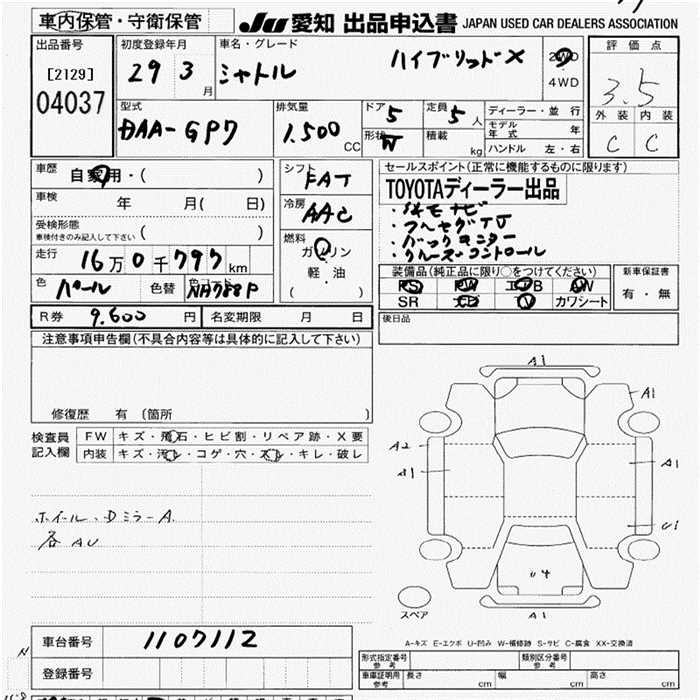 車内保管・守衛保管 JU 愛知 出品申込書 JAPAN USED CAR DEALERS ASSOCIATION
出品番号 初度登録年月 車名・グレード ハイブリッドX 2WD 評価点
[2129] 29 3 月 シャトル ・ 4WD 3.5
04037 型式 排気量 ドア 5 定員 5 人 ディーラー・並行 外装 内装
DAA-GP7 1.500 CC 形状 W 積載 kg モデル年式 年 C C
ハンドル 左・右
車歴 自家用・( ) シフト FAT セールスポイント(正常に機能するものに限ります)
車検 年 月( 日) 冷房 AAC TOYOTAディーラー出品
受検形態 ・スマモナビ
車検付きのみ記入して下さい ( ) 燃料 ・フルセグTV
走行 16万0千797km ガソリン ・バックモニター
軽・油 ・クルーズコントロール
色 パール 色替 色コード NH788P ( ) 装備品(純正品に限り○をつけてください) 新車保証書
PS PW エアB AW 有・無
R券 9.600 円 名変期限 月 日 SR TV カワシート
注意事項申告欄(不具合内容等は具体的に記入して下さい) 後日品
修復歴 有 (箇所 )
検査員 FW キズ・飛石・ヒビ割・リペア跡・X要
記入欄 内装 キズ・汚レ・コゲ・穴・スレ・キレ・破レ
A1
A1
A2
A1 A1
U1
ホイール、Dミラー A
各 AU
U4
スペア A1
車台番号 1107112 A-キズ E-エクボ U-凹み W-補修跡 S-サビ C-腐食 XX-交換済
登録番号 形式指定番号 参考 類別区分番号 参考
車庫証明用 参考 長さ cm 幅 cm 高さ cm